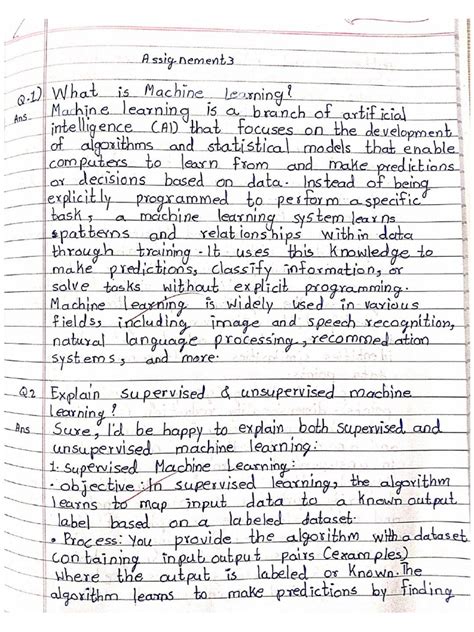 Assignement3
Q.1) What is Machine Learning?
Ans Machine learning is a branch of artificial
intelligence (AI) that focuses on the development
of algorithms and statistical models that enable
computers to learn from and make predictions
or decisions based on data. Instead of being
explicitly programmed to perform a specific
task, a machine learning system learns
spatterns and relationships within data
through training. It uses this knowledge to
make predictions, classify information, or
solve tasks without explicit programming.
Machine learning is widely used in various
fields, including image and speech recognition,
natural language processing, recommedation
systems, and more.
Q2 Explain supervised & unsupervised machine
learning?
Ans Sure, I'd be happy to explain both supervised and
unsupervised machine learning:
1. Supervised Machine Learning:
• objective: In supervised learning, the algorithm
learns to map input data to a known output
label based on a labeled dataset.
• Process: You provide the algorithm with a dataset
containing input output pairs (examples)
Where the output is labeled or known. The
algorithm learns to make predictions by finding